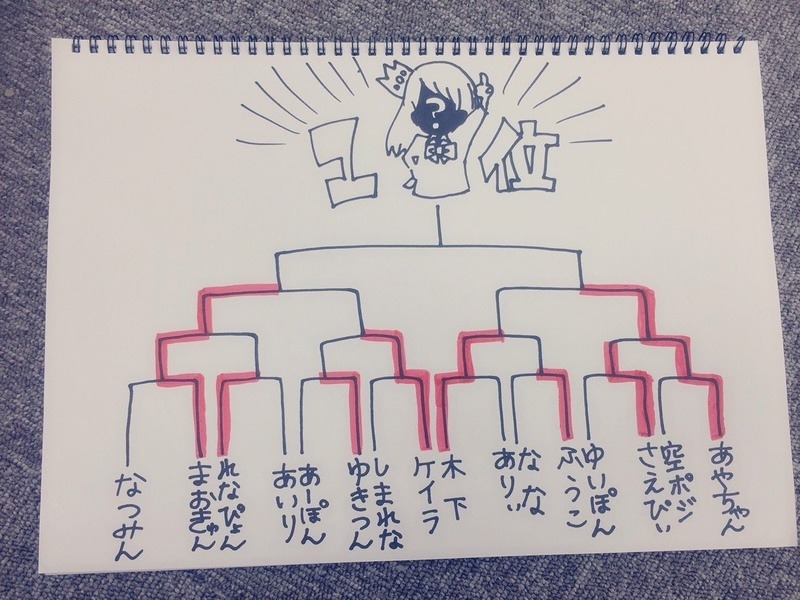 ?
1位
なつみん
まおきゅん
れなぴょん
あいり
あーぽん
ゆきつん
しまれな
ケイラ
木下
ありぃ
なな
ふうこ
ゆいぽん
さえぴぃ
空ポジ
あやちゃん